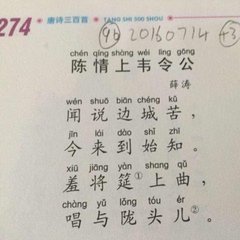 274
唐诗三百首 · TANG SHI 300 SHOU
96 20160714 +3
chén qíng shàng wéi lìng gōng
陈情上韦令公
薛涛
wén shuō biān chéng kǔ
闻说边城苦,
jīn lái dào shǐ zhī
今来到始知。
xiū jiāng yán shang qǔ
羞将筵①上曲,
chàng yǔ lǒng tóu ér
唱与陇头儿②。